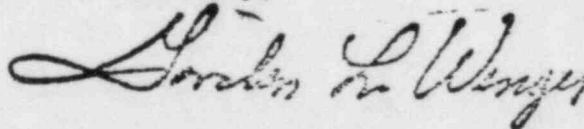 Gordon L. Wenger